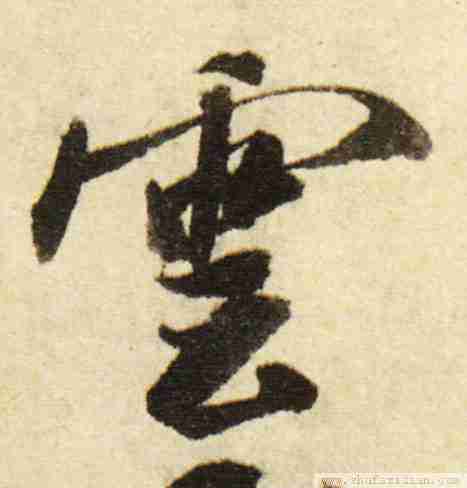 雲
www.shufazidian.com